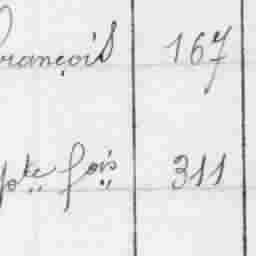 François 167
pte fois 311